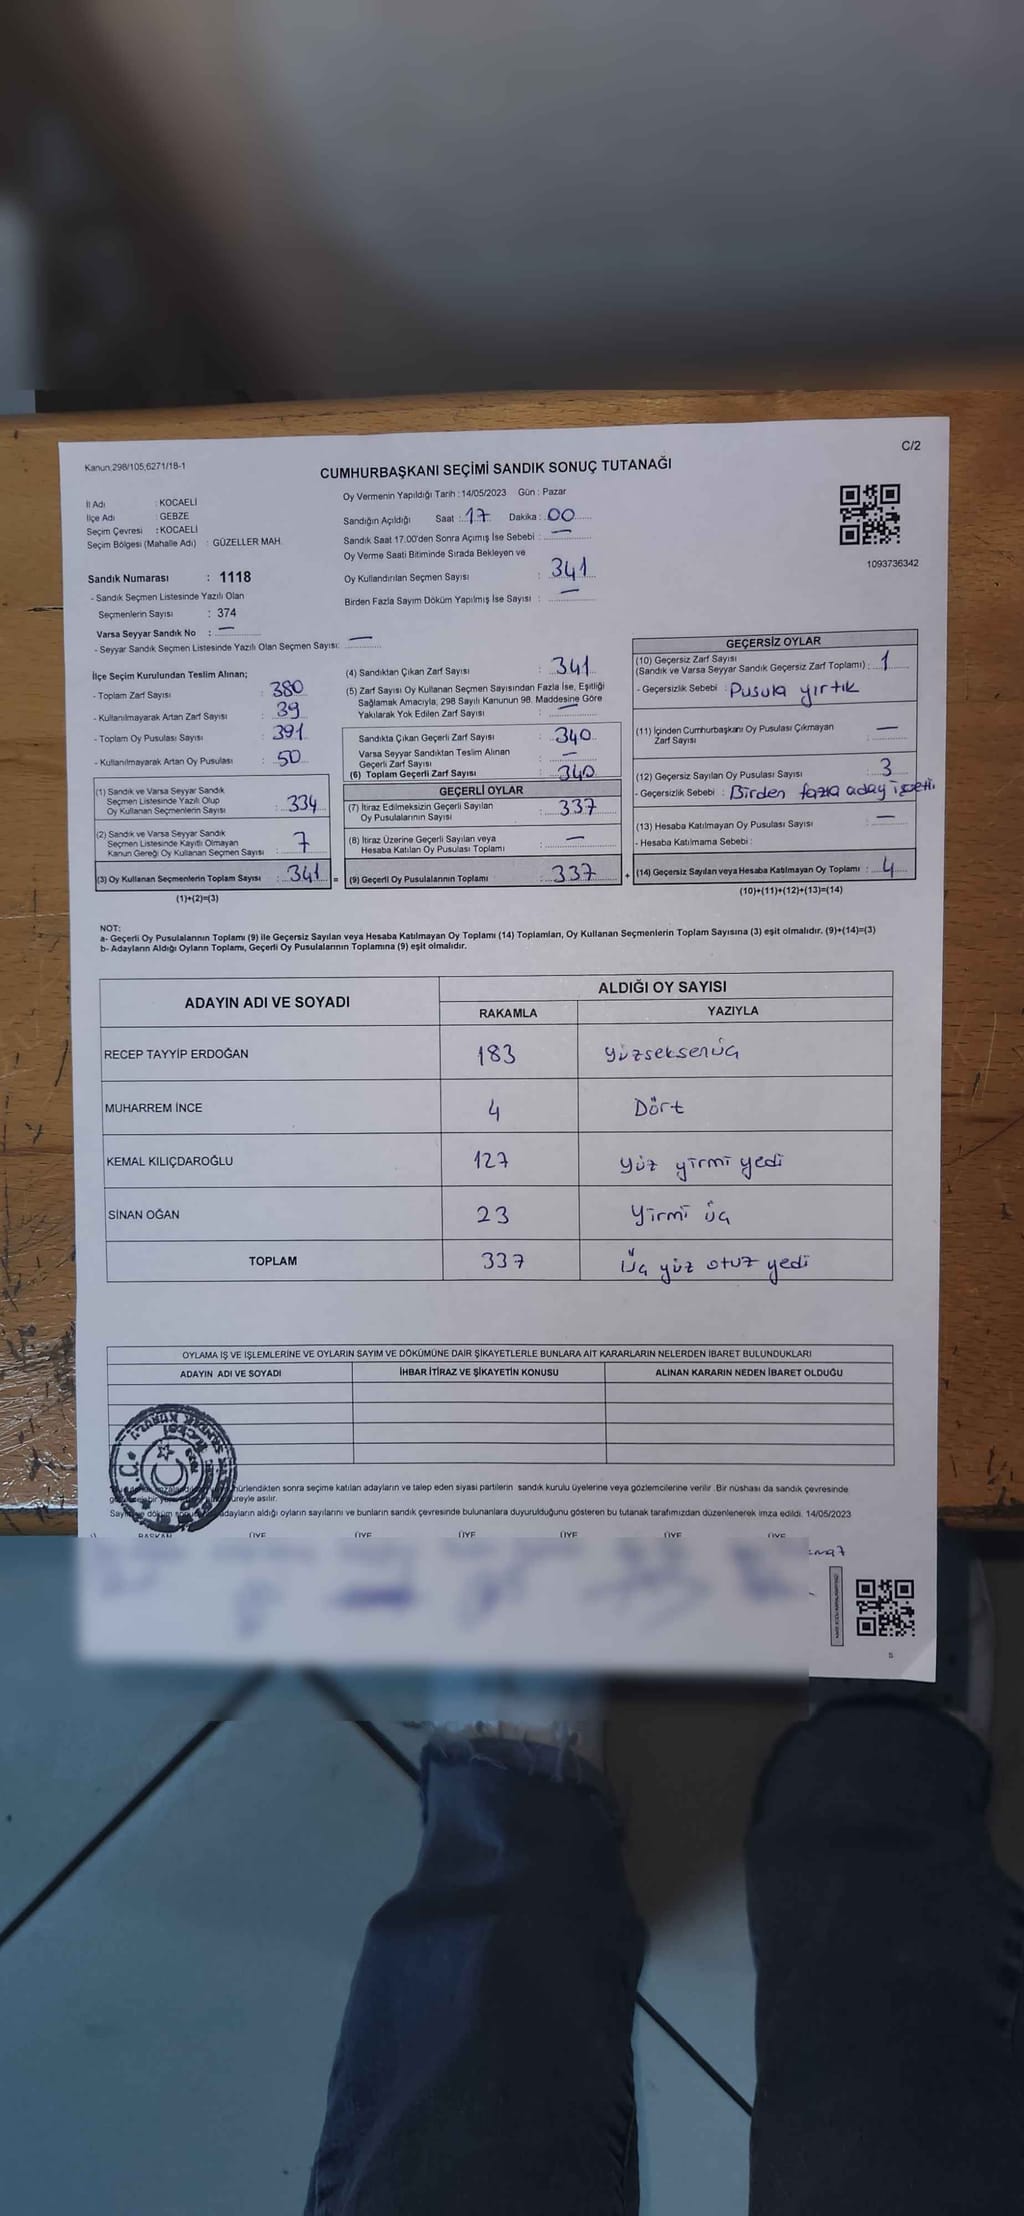 Kanun,298/105,6271/18-1
C/2
CUMHURBAŞKANI SEÇİMİ SANDIK SONUÇ TUTANAĞI
İl Adı : KOCAELİ
İlçe Adı : GEBZE
Seçim Çevresi : KOCAELİ
Seçim Bölgesi (Mahalle Adı) : GÜZELLER MAH.
Sandık Numarası : 1118
- Sandık Seçmen Listesinde Yazılı Olan
Seçmenlerin Sayısı : 374
Varsa Seyyar Sandık No : —
- Seyyar Sandık Seçmen Listesinde Yazılı Olan Seçmen Sayısı: —
Oy Vermenin Yapıldığı Tarih : 14/05/2023 Gün : Pazar
Sandığın Açıldığı Saat : 17 Dakika : 00
Sandık Saat 17.00'den Sonra Açımış İse Sebebi : —
Oy Verme Saati Bitiminde Sırada Bekleyen ve
Oy Kullandırılan Seçmen Sayısı : 341
Birden Fazla Sayım Döküm Yapılmış İse Sayısı : —
1093736342
İlçe Seçim Kurulundan Teslim Alınan;
- Toplam Zarf Sayısı : 380
- Kullanılmayarak Artan Zarf Sayısı : 39
- Toplam Oy Pusulası Sayısı : 391
- Kullanılmayarak Artan Oy Pusulası : 50
(1) Sandık ve Varsa Seyyar Sandık
Seçmen Listesinde Yazılı Olup
Oy Kullanan Seçmenlerin Sayısı : 334
(2) Sandık ve Varsa Seyyar Sandık
Seçmen Listesinde Kayıtlı Olmayan
Kanun Gereği Oy Kullanan Seçmen Sayısı : 7
(3) Oy Kullanan Seçmenlerin Toplam Sayısı : 341 =
(1)+(2)=(3)
(4) Sandıktan Çıkan Zarf Sayısı : 341
(5) Zarf Sayısı Oy Kullanan Seçmen Sayısından Fazla İse, Eşitliği
Sağlamak Amacıyla, 298 Sayılı Kanunun 98. Maddesine Göre
Yakılarak Yok Edilen Zarf Sayısı : —
Sandıkta Çıkan Geçerli Zarf Sayısı : 340
Varsa Seyyar Sandıktan Teslim Alınan
Geçerli Zarf Sayısı : —
(6) Toplam Geçerli Zarf Sayısı : 340
GEÇERLİ OYLAR
(7) İtiraz Edilmeksizin Geçerli Sayılan
Oy Pusulalarının Sayısı : 337
(8) İtiraz Üzerine Geçerli Sayılan veya
Hesaba Katılan Oy Pusulası Toplamı : —
(9) Geçerli Oy Pusulalarının Toplamı : 337 +
GEÇERSİZ OYLAR
(10) Geçersiz Zarf Sayısı
(Sandık ve Varsa Seyyar Sandık Geçersiz Zarf Toplamı) : 1
- Geçersizlik Sebebi : Pusula yırtık
(11) İçinden Cumhurbaşkanı Oy Pusulası Çıkmayan
Zarf Sayısı : —
(12) Geçersiz Sayılan Oy Pusulası Sayısı : 3
- Geçersizlik Sebebi : Birden fazla aday
(13) Hesaba Katılmayan Oy Pusulası Sayısı : —
- Hesaba Katılmama Sebebi :
(14) Geçersiz Sayılan veya Hesaba Katılmayan Oy Toplamı : 4
(10)+(11)+(12)+(13)=(14)
NOT:
a- Geçerli Oy Pusulalarının Toplamı (9) ile Geçersiz Sayılan veya Hesaba Katılmayan Oy Toplamı (14) Toplamları, Oy Kullanan Seçmenlerin Toplam Sayısına (3) eşit olmalıdır. (9)+(14)=(3)
b- Adayların Aldığı Oyların Toplamı, Geçerli Oy Pusulalarının Toplamına (9) eşit olmalıdır.
ADAYIN ADI VE SOYADI ALDIĞI OY SAYISI
RAKAMLA YAZIYLA
RECEP TAYYİP ERDOĞAN 183 Yüzseksenüç
MUHARREM İNCE 4 Dört
KEMAL KILIÇDAROĞLU 127 Yüz yirmi yedi
SİNAN OĞAN 23 Yirmi üç
TOPLAM 337 Üç yüz otuz yedi
OYLAMA İŞ VE İŞLEMLERİNE VE OYLARIN SAYIM VE DÖKÜMÜNE DAİR ŞİKAYETLERLE BUNLARA AİT KARARLARIN NELERDEN İBARET BULUNDUKLARI
ADAYIN ADI VE SOYADI İHBAR İTİRAZ VE ŞİKAYETİN KONUSU ALINAN KARARIN NEDEN İBARET OLDUĞU
sonra seçime katılan adayların ve talep eden siyasi partilerin sandık kurulu üyelerine veya gözlemcilerine verilir. Bir nüshası da sandık çevresinde
asılır.
adayların aldığı oyların sayılarını ve bunların sandık çevresinde bulunanlara duyurulduğunu gösteren bu tutanak tarafımızdan düzenlenerek imza edildi. 14/05/2023
BAŞKAN ÜYE ÜYE ÜYE ÜYE ÜYE ÜYE
5